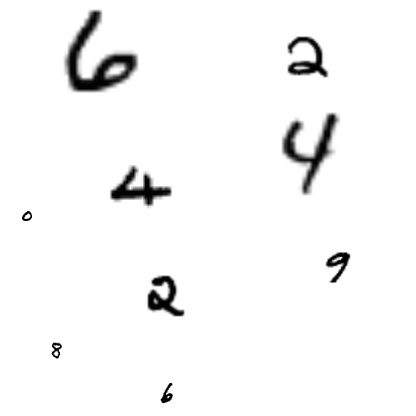 6 2
4
4
0
9
2
8
6